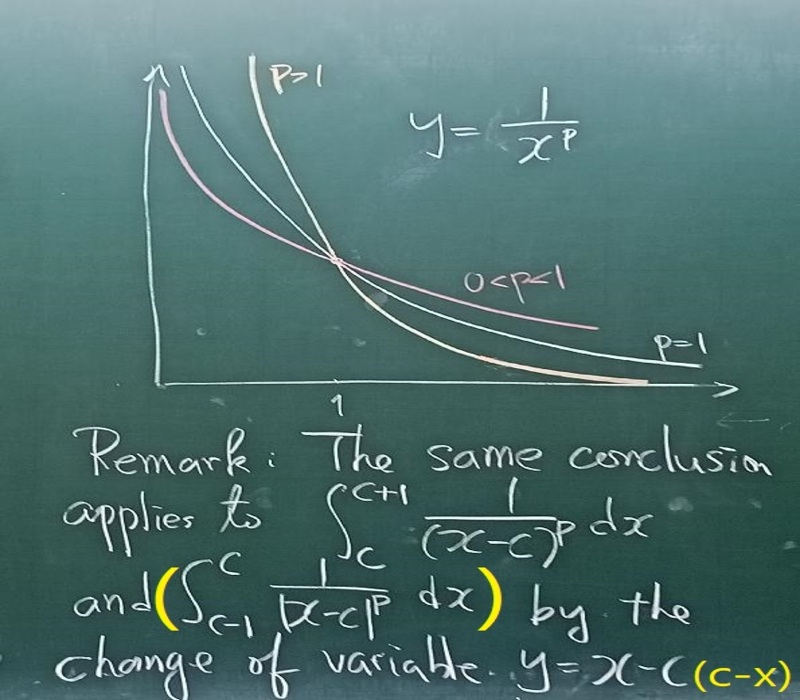 P>1
y = 1/x^p
0<p<1
p=1
1
Remark: The same conclusion
applies to ∫_C^{C+1} 1/(x-c)^p dx
and (∫_{C-1}^C 1/|x-c|^p dx) by the
change of variable. y=x-c (c-x)